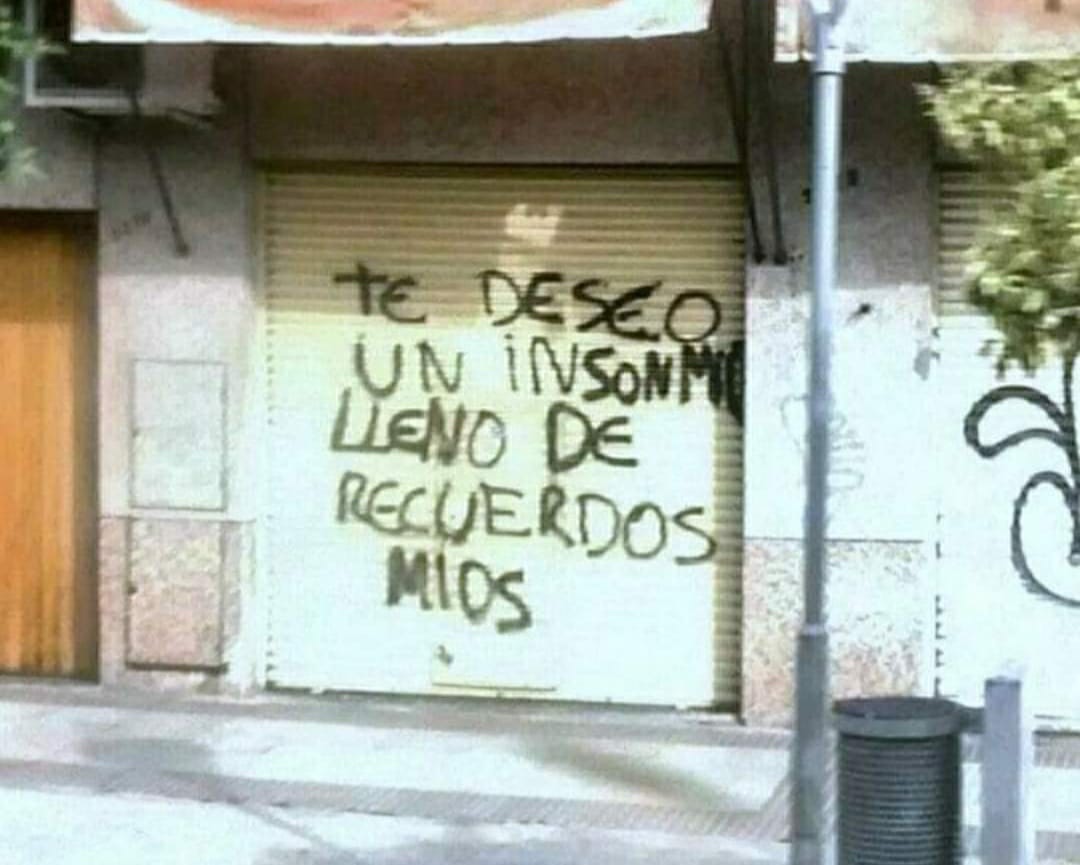 TE DESEO
UN INSONMIO
LLENO DE
RECUERDOS
MIOS